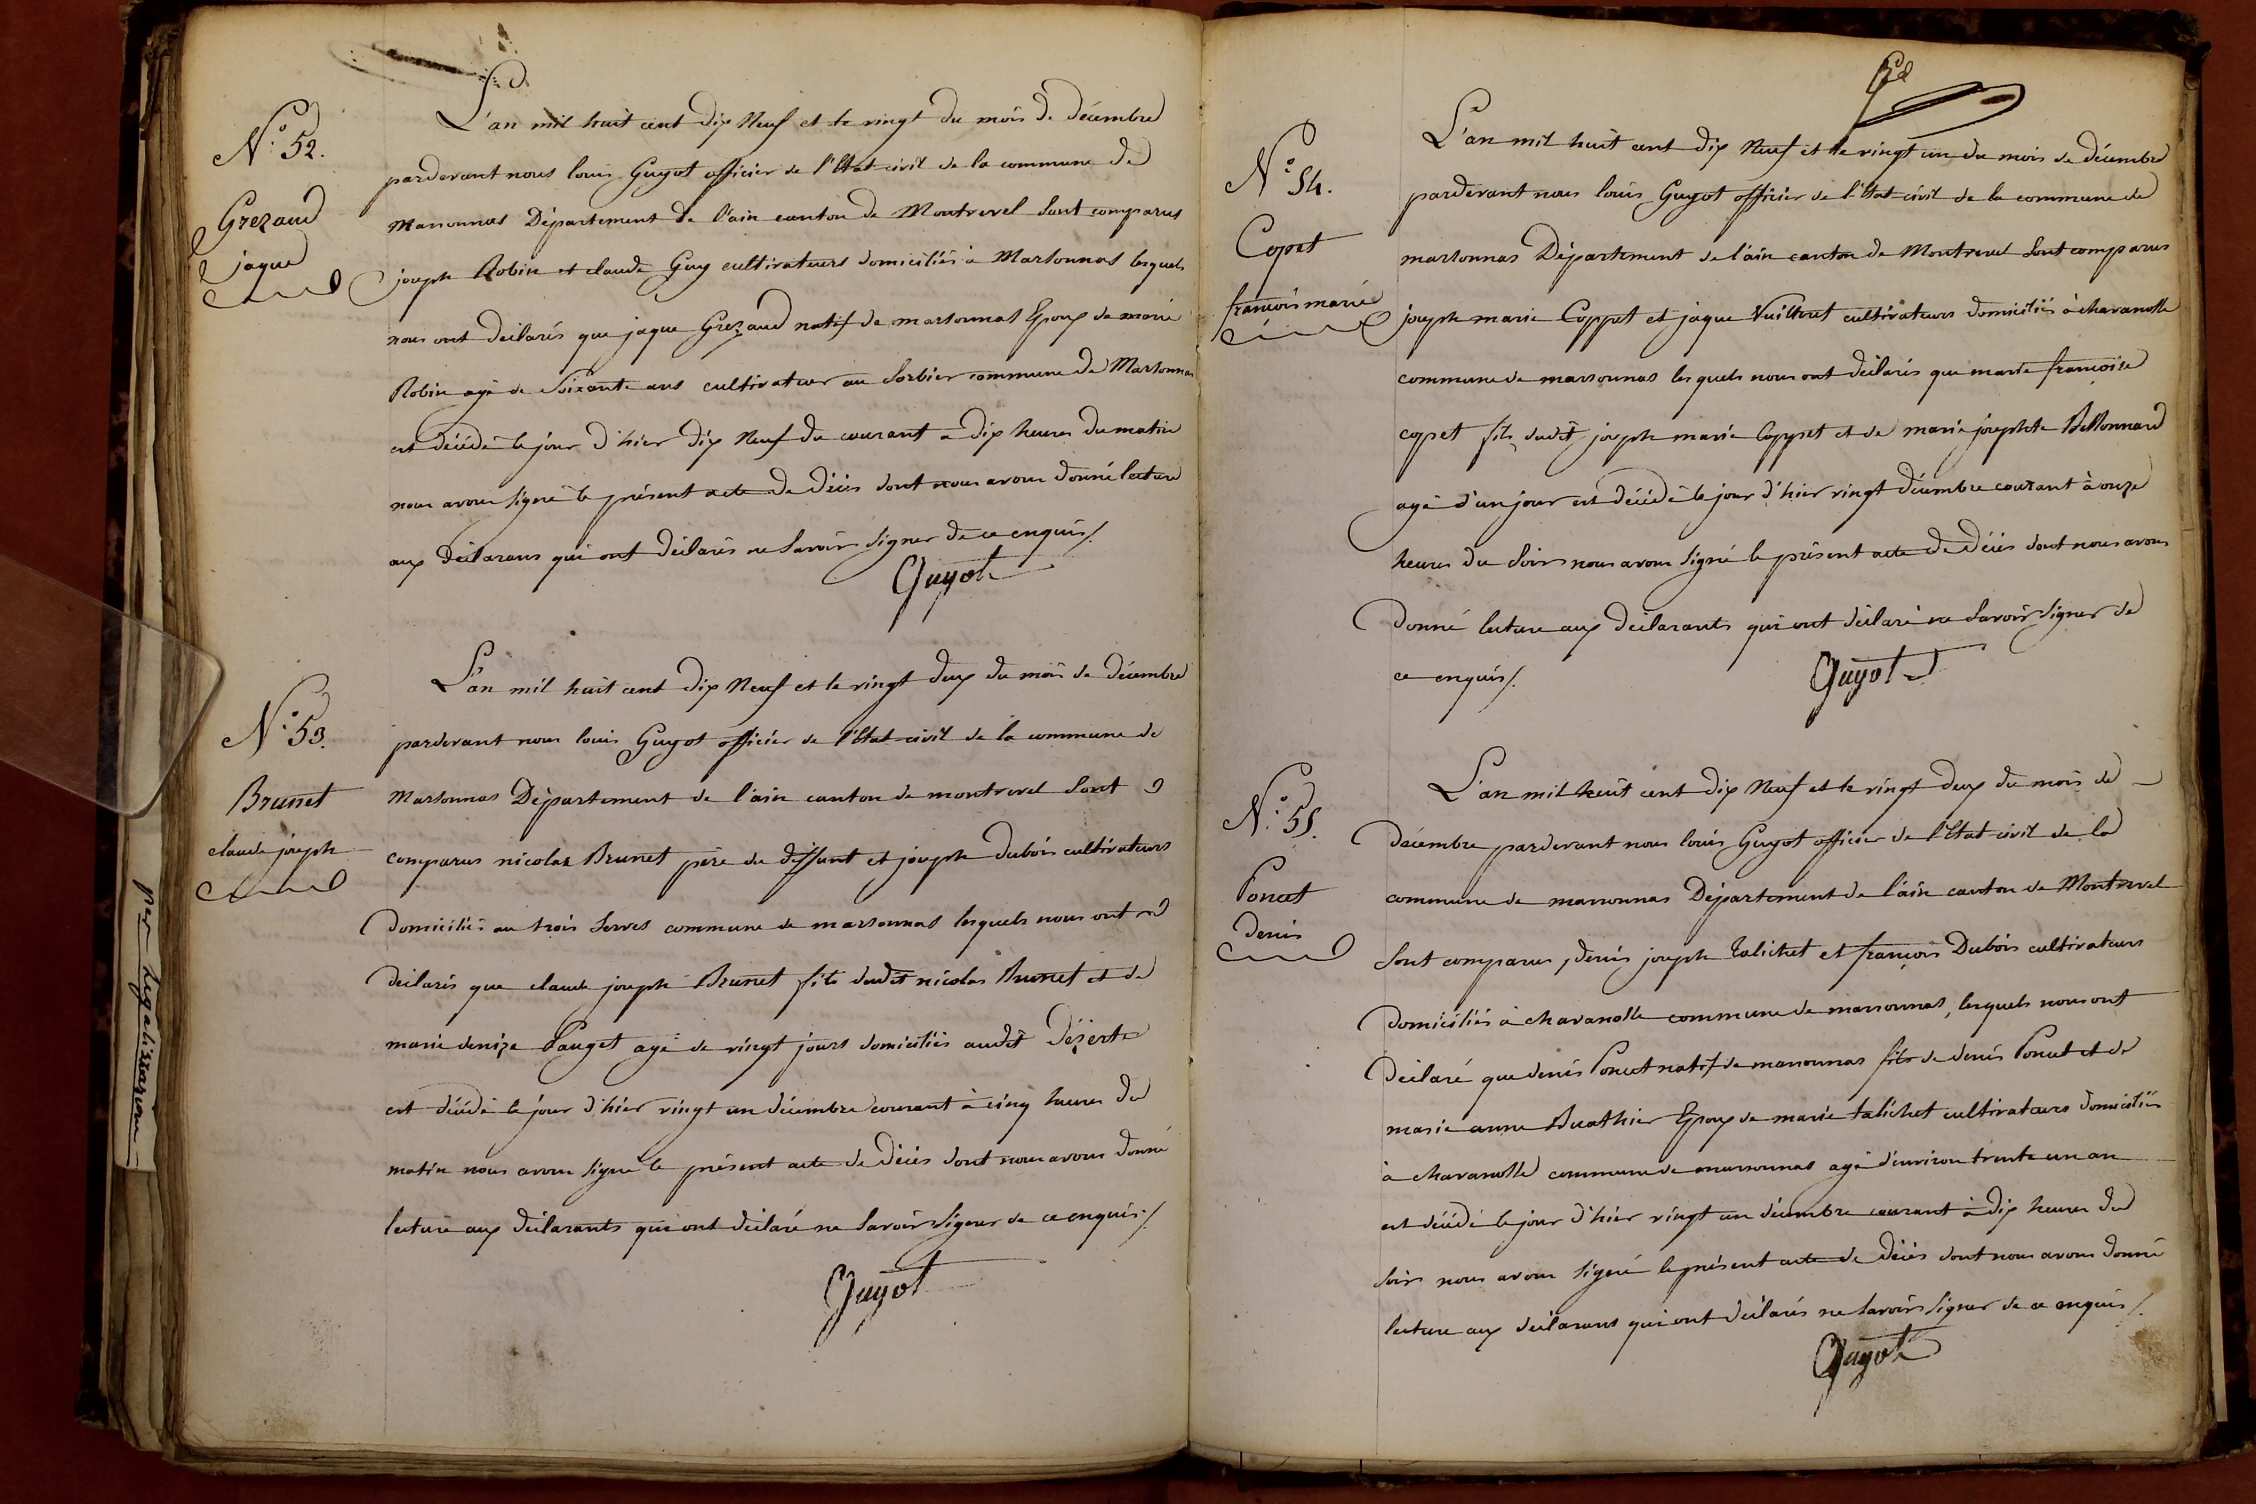 N.° 52.
Grezaud
jaque
L'an mil huit cent dix Neuf et le vingt du mois de décembre
pardevant nous louis Guyot officier de l'Etat civil de la commune de
Marsonnas Département de l'ain canton de Montrevel Sont comparus
joseph Robin et claude Guy cultivateurs domiciliés à Marsonnas lesquels
nous ont déclarés que jaque Grezaud natif de marsonnas Epoux de marie
Robin agé de Soixante ans cultivateur au Sorbier commune de Marsonnas
est décédé le jour d'hier dix Neuf du courant a dix heures du matin
nous avons signé le présent acte de décès dont nous avons donné lecture
aux déclarans qui ont déclarés ne Savoir Signer de ce enquis /.
Guyot
N.° 53.
Brunet
claude joseph
L'an mil huit cent dix Neuf et le vingt deux du mois de décembre
pardevant nous louis Guyot officier de l'Etat civil de la commune de
Marsonnas Département de l'ain canton de montrevel Sont
comparus nicolas Brunet père du deffunt et joseph dubois cultivateurs
domiciliés au trois Serves commune de marsonnas lesquels nous ont
déclarés que claude joseph Brunet fils dudit nicolas Brunet et de
marie denize Pauget agé de vingt jours domiciliés audit dézerte
est décédé le jour d'hier vingt un décembre courant à cinq heures du
matin nous avons signé le présent acte de décès dont nous avons donné
lecture aux déclarants qui ont déclaré ne Savoir Signer de ce enquis /.
Guyot
N.° 54.
Copet
françois marie
L'an mil huit cent dix Neuf et le vingt un du mois de décembre
pardevant nous louis Guyot officier de l'Etat civil de la commune de
marsonnas Département de l'ain canton de Montrevel Sont comparus
joseph marie Coppet et jaque Vuilleret cultivateurs domiciliés à charanolle
commune de marsonnas lesquels nous ont déclarés que marie françoise
copet fils dudit joseph marie Coppet et de marie josephte Bellonnard
agé d'un jour est décédé le jour d'hier vingt décembre courant à onze
heures du Soir nous avons signé le présent acte de décès dont nous avons
donné lecture aux déclarants qui ont déclaré ne Savoir Signer de
ce enquis /.
Guyot
N.° 55.
Poncet
denis
L'an mil huit cent dix Neuf et le vingt deux du mois de
décembre pardevant nous louis Guyot officier de l'Etat civil de la
commune de marsonnas Département de l'ain canton de Montrevel
Sont comparus, denis joseph Talichet et françois Dubois cultivateurs
domiciliés à charanolle commune de marsonnas, lesquels nous ont
déclaré que denis Poncet natif de marsonnas fils de denis Poncet et de
marie anne Buathier Epoux de marie talichet cultivateurs domiciliés
à charanolle commune de marsonnas agé d'environ trente un an
est décédé le jour d'hier vingt un décembre courant à dix heures du
Soir nous avons signé le présent acte de décès dont nous avons donné
lecture aux déclarans qui ont déclarés ne Savoir Signer de ce enquis /.
Guyot
per Legalizzazione